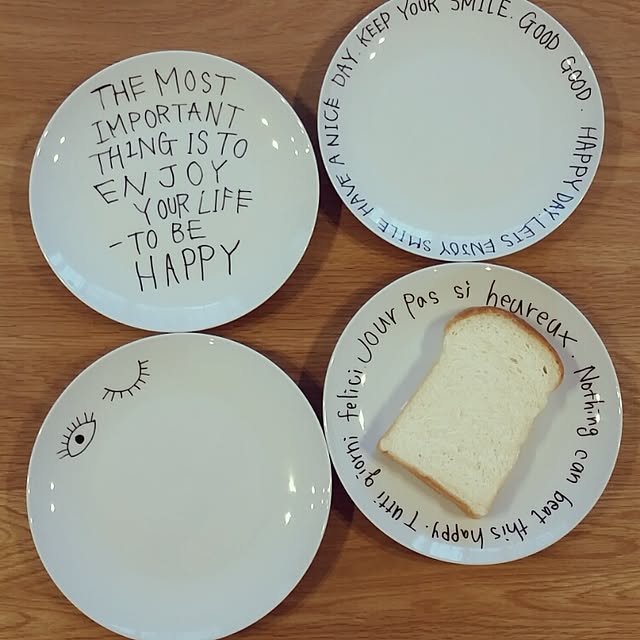 THE MOST
IMPORTANT
THING IS TO
ENJOY
YOUR LIFE
-TO BE
HAPPY
HAVE A NICE DAY. KEEP YOUR SMILE. GOOD GOOD. HAPPY DAY. LETS ENJOY SMILE
Tutti giorni felici Jour Pas si heureux. Nothing can beat this happy.